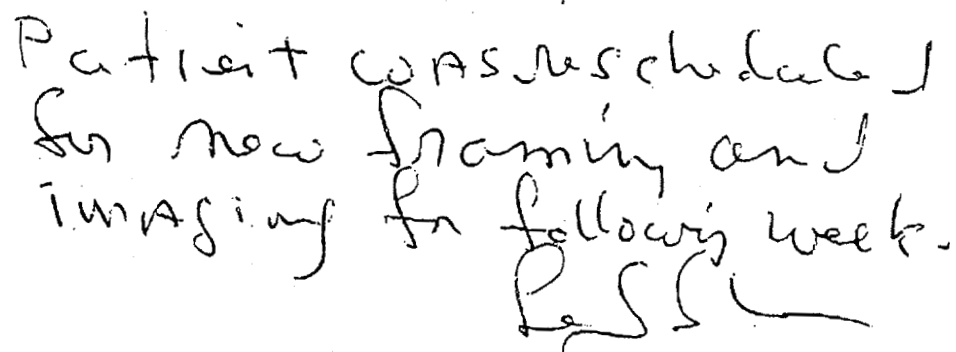 Patient was rescheduled
for new framing and
imaging for following week.